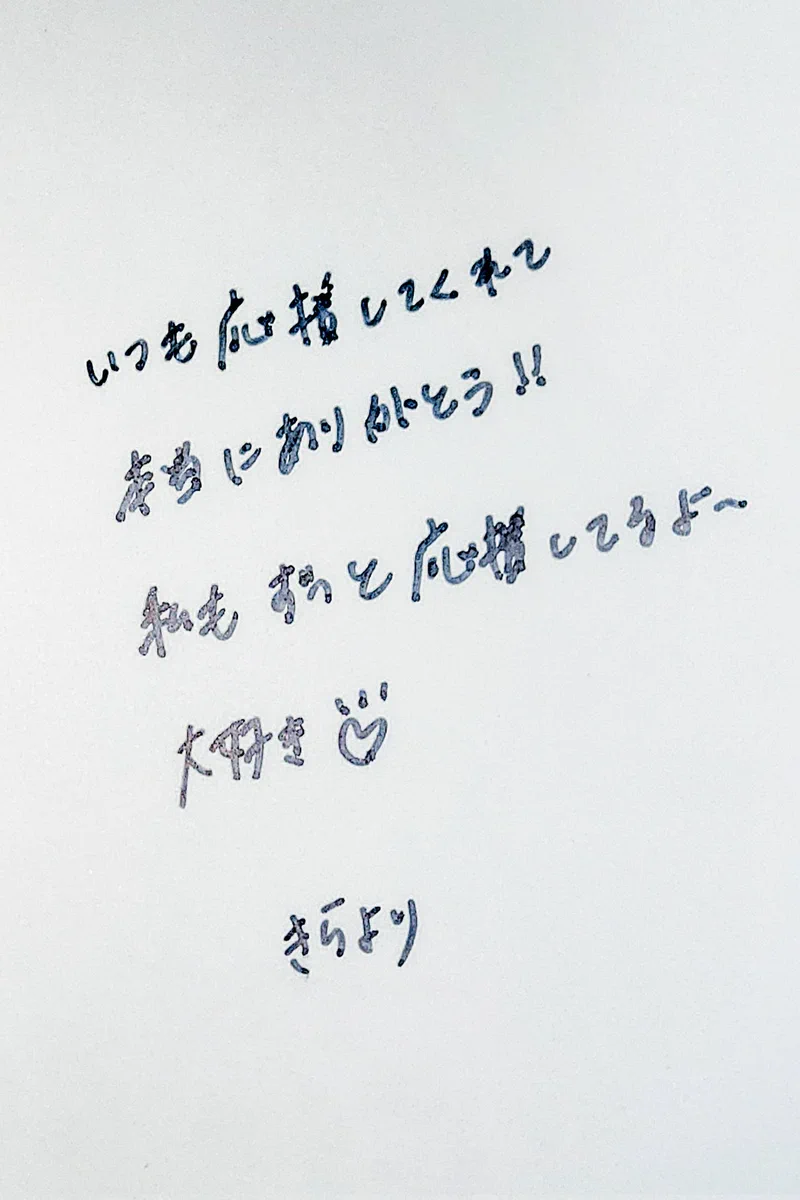 いつも応援してくれて
本当にありがとう!!
私もずっと応援してるよ〜
大好き♡
きらより